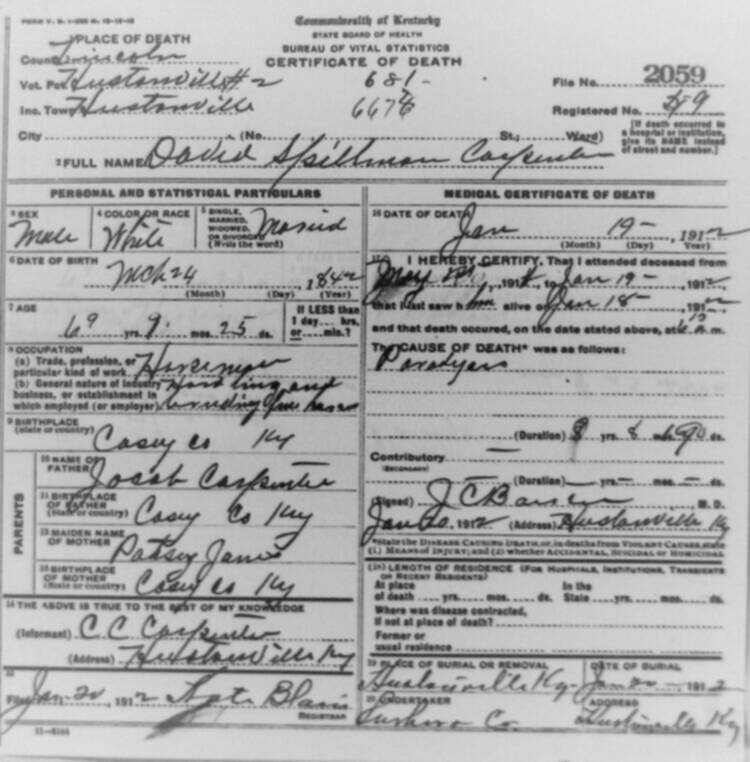 FORM V. S. 1
Commonwealth of Kentucky
STATE BOARD OF HEALTH
BUREAU OF VITAL STATISTICS
CERTIFICATE OF DEATH
1 PLACE OF DEATH
County Lincoln
Vot. Pct. Hustonville #2
Inc. Town Hustonville
681-
6678
File No. 2059
Registered No. 59
[If death occurred in a hospital or institution, give its NAME instead of street and number.]
City (No. St.; Ward)
2 FULL NAME David Spillman Carpenter
PERSONAL AND STATISTICAL PARTICULARS
3 SEX
Male
4 COLOR OR RACE
White
5 SINGLE, MARRIED, WIDOWED, OR DIVORCED (Write the word)
Married
6 DATE OF BIRTH
Mch 24 1842
(Month) (Day) (Year)
7 AGE
69 yrs. 9 mos. 25 ds.
If LESS than 1 day hrs, or min.?
8 OCCUPATION
(a) Trade, profession, or particular kind of work Horseman
(b) General nature of industry, business, or establishment in which employed (or employer) and
9 BIRTHPLACE
(state or country)
Casey Co Ky
PARENTS
10 NAME OF FATHER Jacob Carpenter
11 BIRTHPLACE OF FATHER (State or country) Casey Co Ky
12 MAIDEN NAME OF MOTHER Patsey
13 BIRTHPLACE OF MOTHER (State or country) Casey Co Ky
14 THE ABOVE IS TRUE TO THE BEST OF MY KNOWLEDGE
(Informant) C C Carpenter
(Address) Hustonville Ky
15
Filed Jan 20, 1912
REGISTRAR
MEDICAL CERTIFICATE OF DEATH
16 DATE OF DEATH
Jan 19- , 1912
(Month) (Day) (Year)
I HEREBY CERTIFY, That I attended deceased from
May , 191 , to Jan 19- , 1912
that I last saw him alive on Jan 18- , 1912
and that death occured, on the date stated above, at 6 a m.
The CAUSE OF DEATH* was as follows:
Paralysis
(Duration) yrs. 8 mos. ds.
Contributory —
(SECONDARY)
(Duration) — yrs. — mos. — ds.
(Signed) J C M. D.
Jan 20, 1912 (Address) Hustonville Ky
*State the DISEASE CAUSING DEATH, or, in deaths from VIOLENT CAUSES, state
(1) MEANS OF INJURY; and (2) whether ACCIDENTAL, SUICIDAL OR HOMICIDAL
(18) LENGTH OF RESIDENCE (FOR HOSPITALS, INSTITUTIONS, TRANSIENTS OR RECENT RESIDENTS)
At place of death yrs. mos. ds. In the State yrs. mos. ds.
Where was disease contracted, If not at place of death?
Former or usual residence
19 PLACE OF BURIAL OR REMOVAL
Hustonville Ky-
DATE OF BURIAL
Jan 20 - 1912
20 UNDERTAKER
Co.
ADDRESS
Hustonville Ky